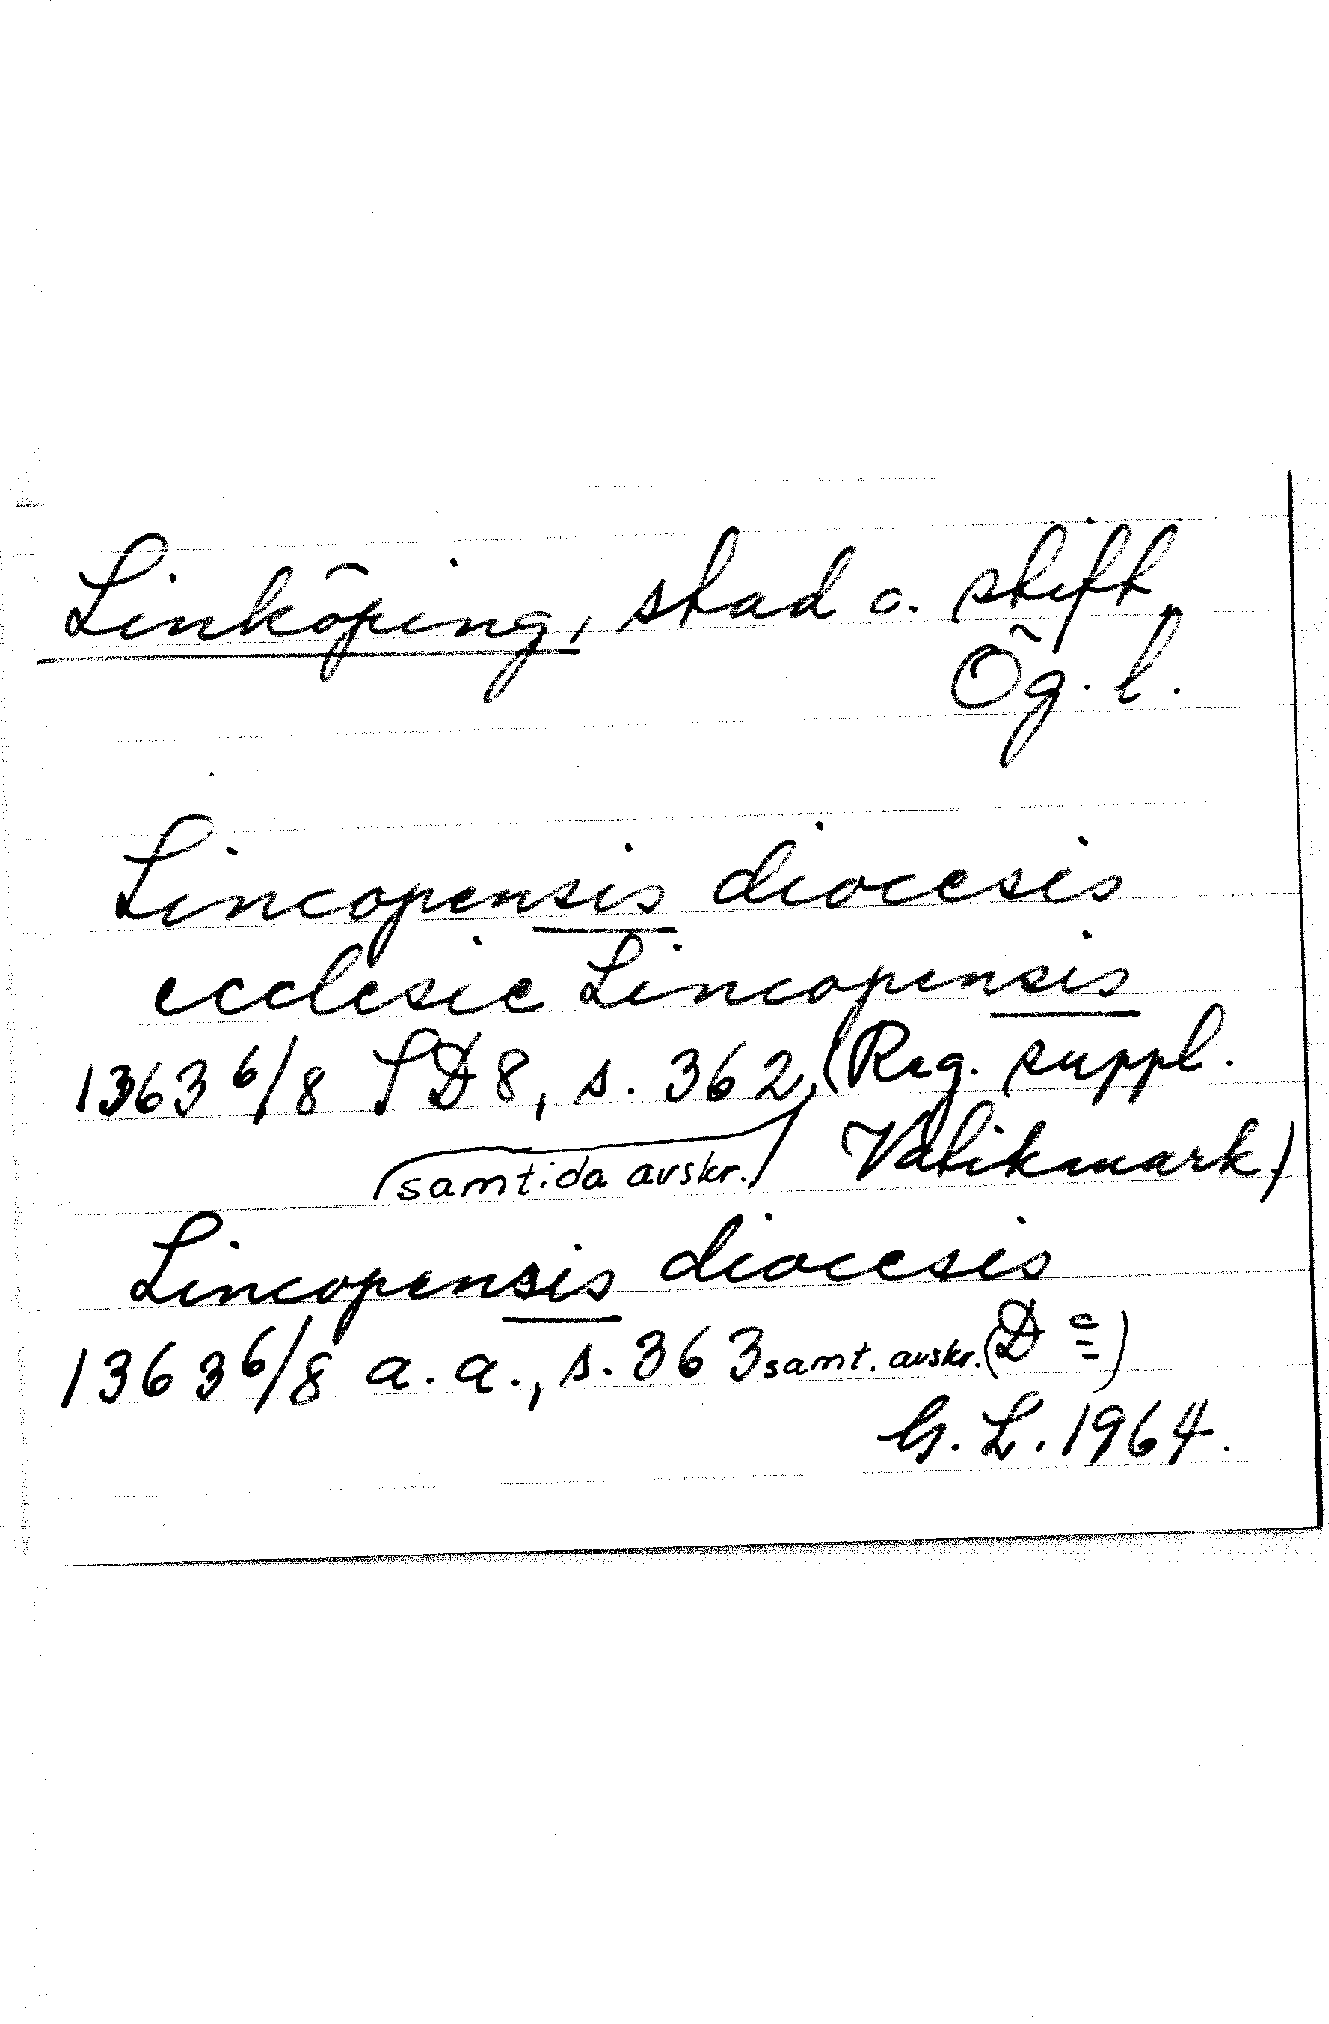 Linköping, stad o. stift,
Ög. l.
Lincopensis diocesis
ecclesie Lincopensis
1363 6/8 SD 8, s. 362, (Reg. suppl.
samtida avskr. Vatikanark.)
Lincopensis diocesis
1363 6/8 a. a., s. 363 samt. avskr. (D =)
G. L. 1964.